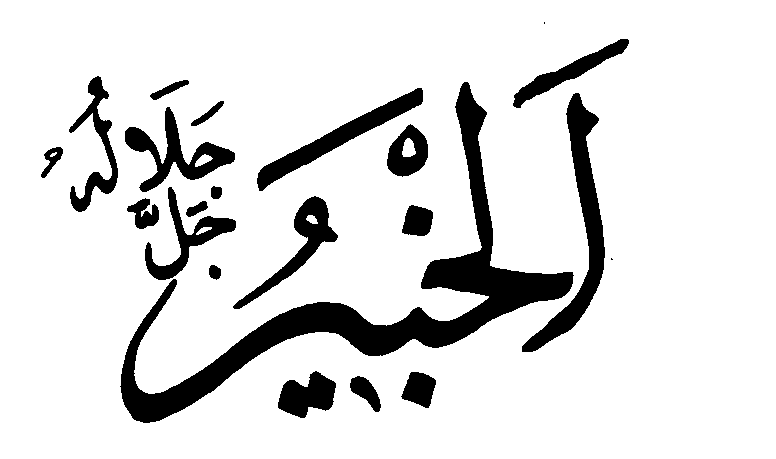 اَلْخَبِيرُ
جَلَّ
جَلَالُهُ